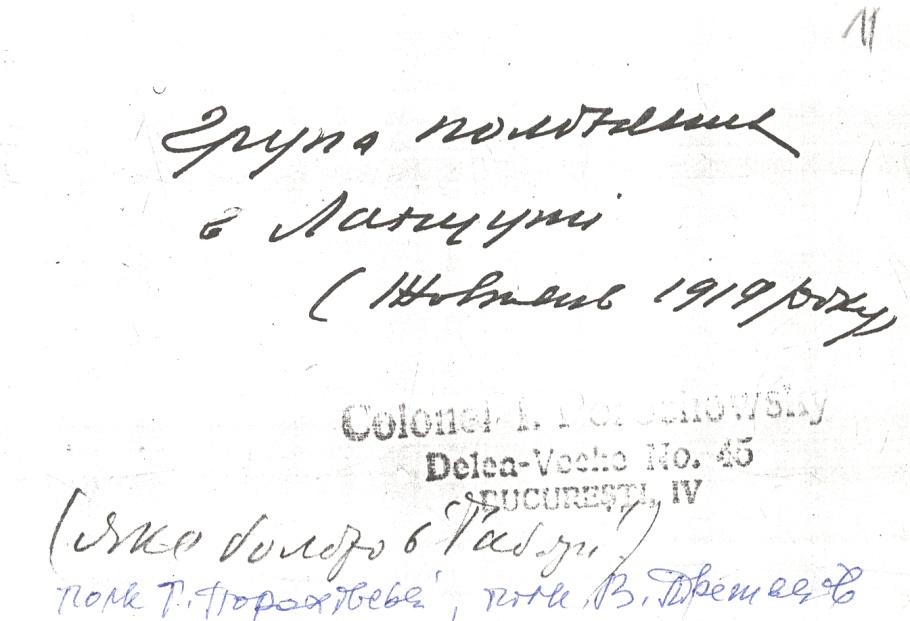 11
Група полонених
в Ланцуті
(Жовтень 1919 року)
Colonel I. Porochowsky
Delea-Veche No. 45
BUCUREŞTI, IV
(Яке болото в
полк Г. Пороховськ , полк. В.